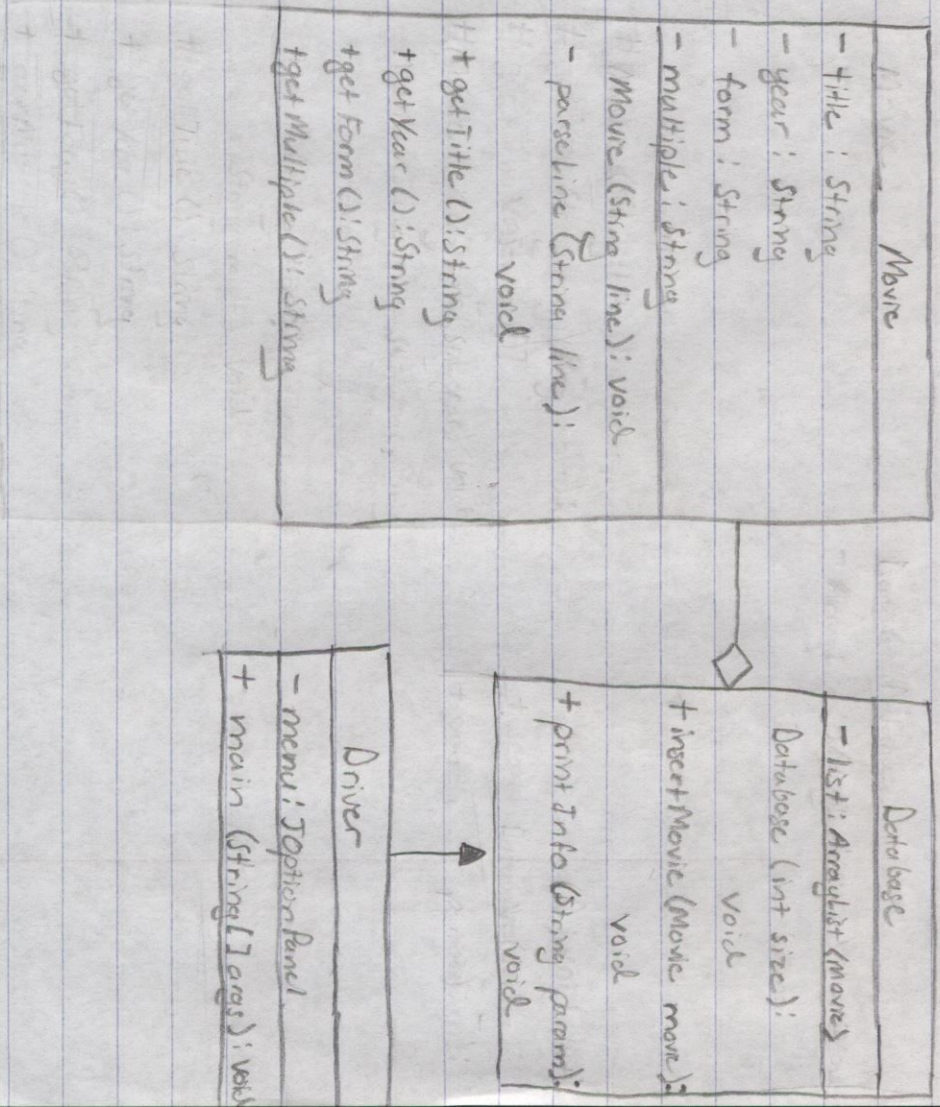 Movie
- title : String
- year : String
- form : String
- multiple : String
Movie (String line) : void
- parseLine (String line) :
void
+ getTitle () : String
+ getYear () : String
+ getForm () : String
+ getMultiple () : String
Database
- list : ArrayList (Movie)
Database (int size) :
void
+ insertMovie (Movie movie) :
void
+ printInfo (String param) :
void
Driver
- menu : JOptionPanel
+ main (String [] args) : void